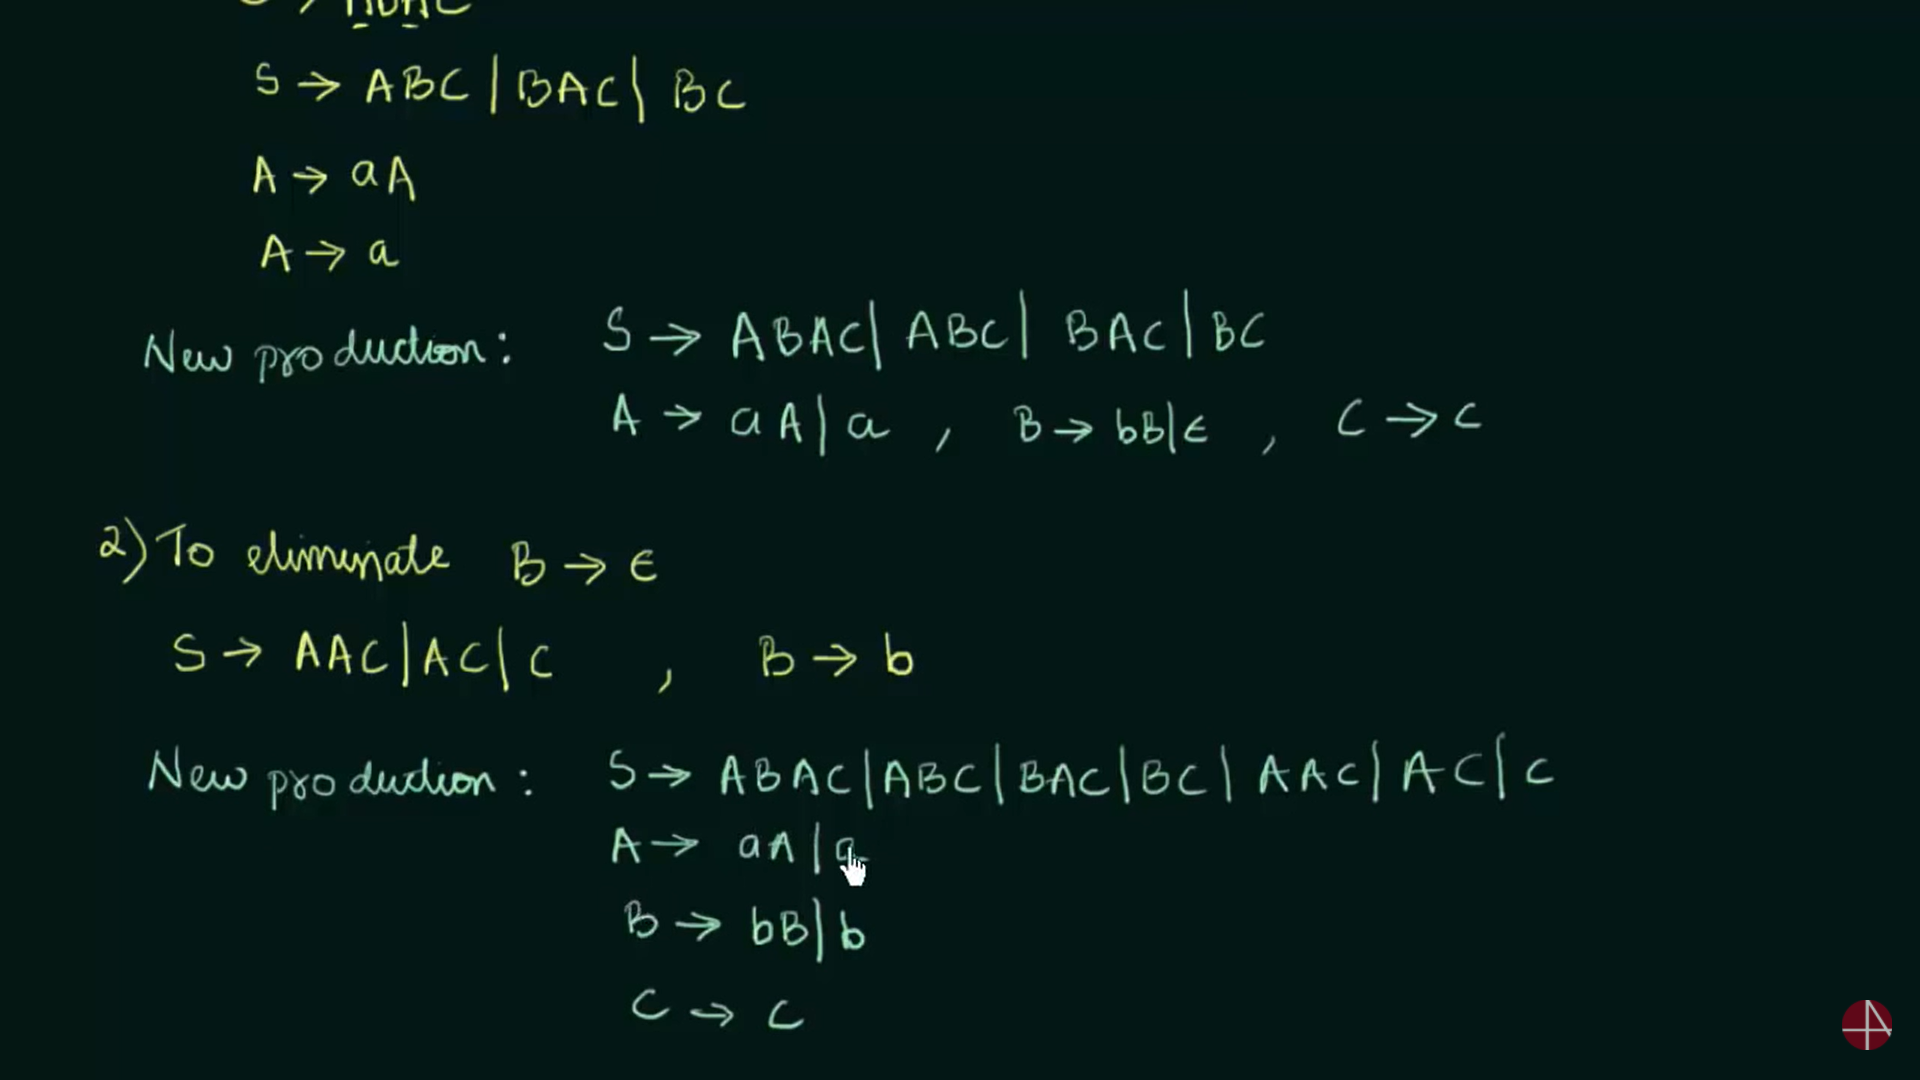 S → ABC | BAC | BC
A → aA
A → a
New production : S → ABAC | ABC | BAC | BC
A → aA | a , B → bB | ϵ , C → c
2) To eliminate B → ϵ
S → AAC | AC | C , B → b
New production : S → ABAC | ABC | BAC | BC | AAC | AC | C
A → aA | a
B → bB | b
C → c